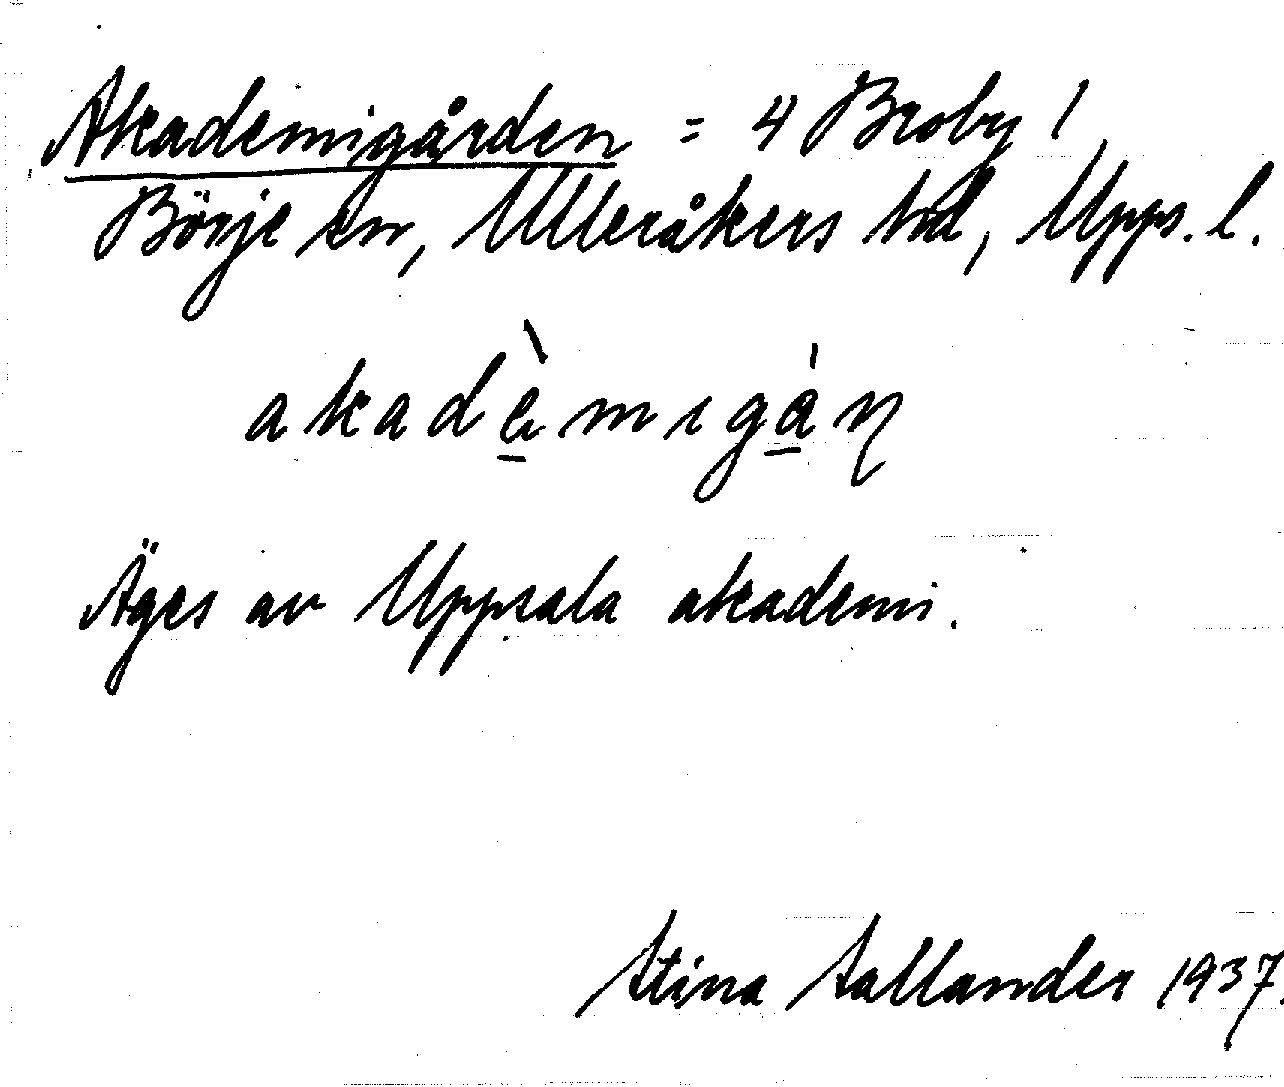 Akademigården = 4 Broby /
Börje sn, Ulleråkers hd, Upps. l.
akadè̱mıgà̱ɳ
Äges av Uppsala akademi.
Stina Sallander 1937.